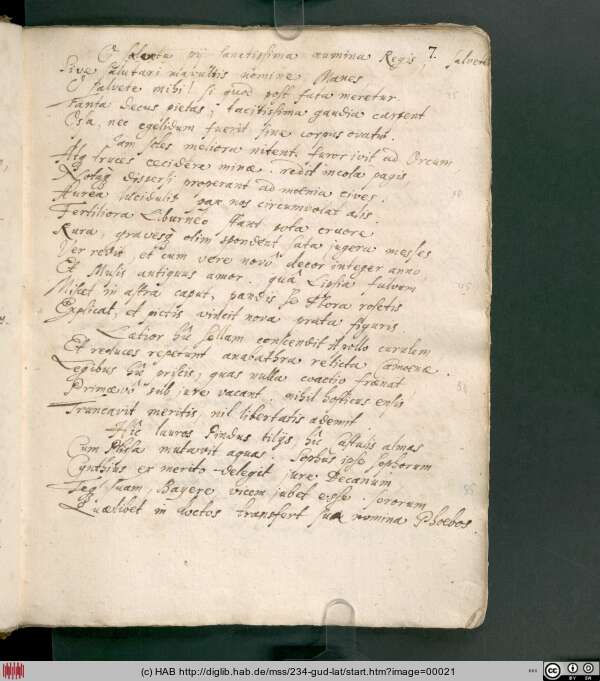 7.
O salvete pii sanctissima numina Regis, salvete
Sive salutari mavultis nomine Manes
O salvete mihi! si qua post fata meretur
45
Tanta decus pietas, tacitissima gaudia carpent
Ossa, nec egelidum fuerit sine corpus
Jam soles meliora nitent. furor ivit ad Orcum
Atq truces cecidere minæ. redit incola pagis,
Totaq dispersi properant ad mœnia cives.
50
Aurea lucidulis pax nos circumvolat alis.
Fertiliora Eburneo stant pota cruore
Rura, gravesq olim spondent sata jugera messes
Ver redit, et cum vere novo decor integer anni,
Et Musis antiquus amor. qua Lipsia fulvum
55
Miscet in astra caput, pandit se Flora rosetis
Explicat, et pictis videit nova prata figuris.
Lætior hic sellam conscendit Apollo curulem
Et reduces repetunt anabathra relicta Camœnæ.
Legibus hic priscis, quas nulla coactio frænat
60
Primævo sub jure vacant. nihil hosticus ensis
Truncavit meritis, nil libertatis ademit
Hic lauros Pindus tiliis, hic
Cum Philsa mutavit aquas. Sophorum
Cynthius ex merito delegit jure Decanum
65
Teq suam, Bayere vicem jubet esse. sororum
Quælibet in doctos transfert sua nomina Phoebos.
(c) HAB http://diglib.hab.de/mss/234-gud-lat/start.htm?image=00021
cc BY SA